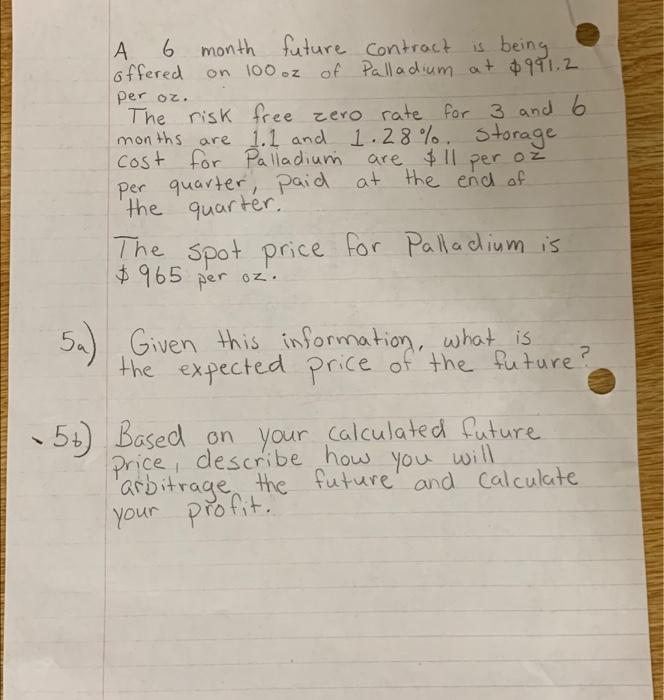 A 6 month future contract is being
offered on 100 oz of Palladium at $991.2
per oz.
The risk free zero rate for 3 and 6
months are 1.1 and 1.28%. Storage
cost for Palladium are $11 per oz
per quarter, paid at the end of
the quarter.
The spot price for Palladium is
$965 per oz.
5a) Given this information, what is
the expected price of the future?
5b) Based on your calculated future
price, describe how you will
arbitrage the future and calculate
your profit.